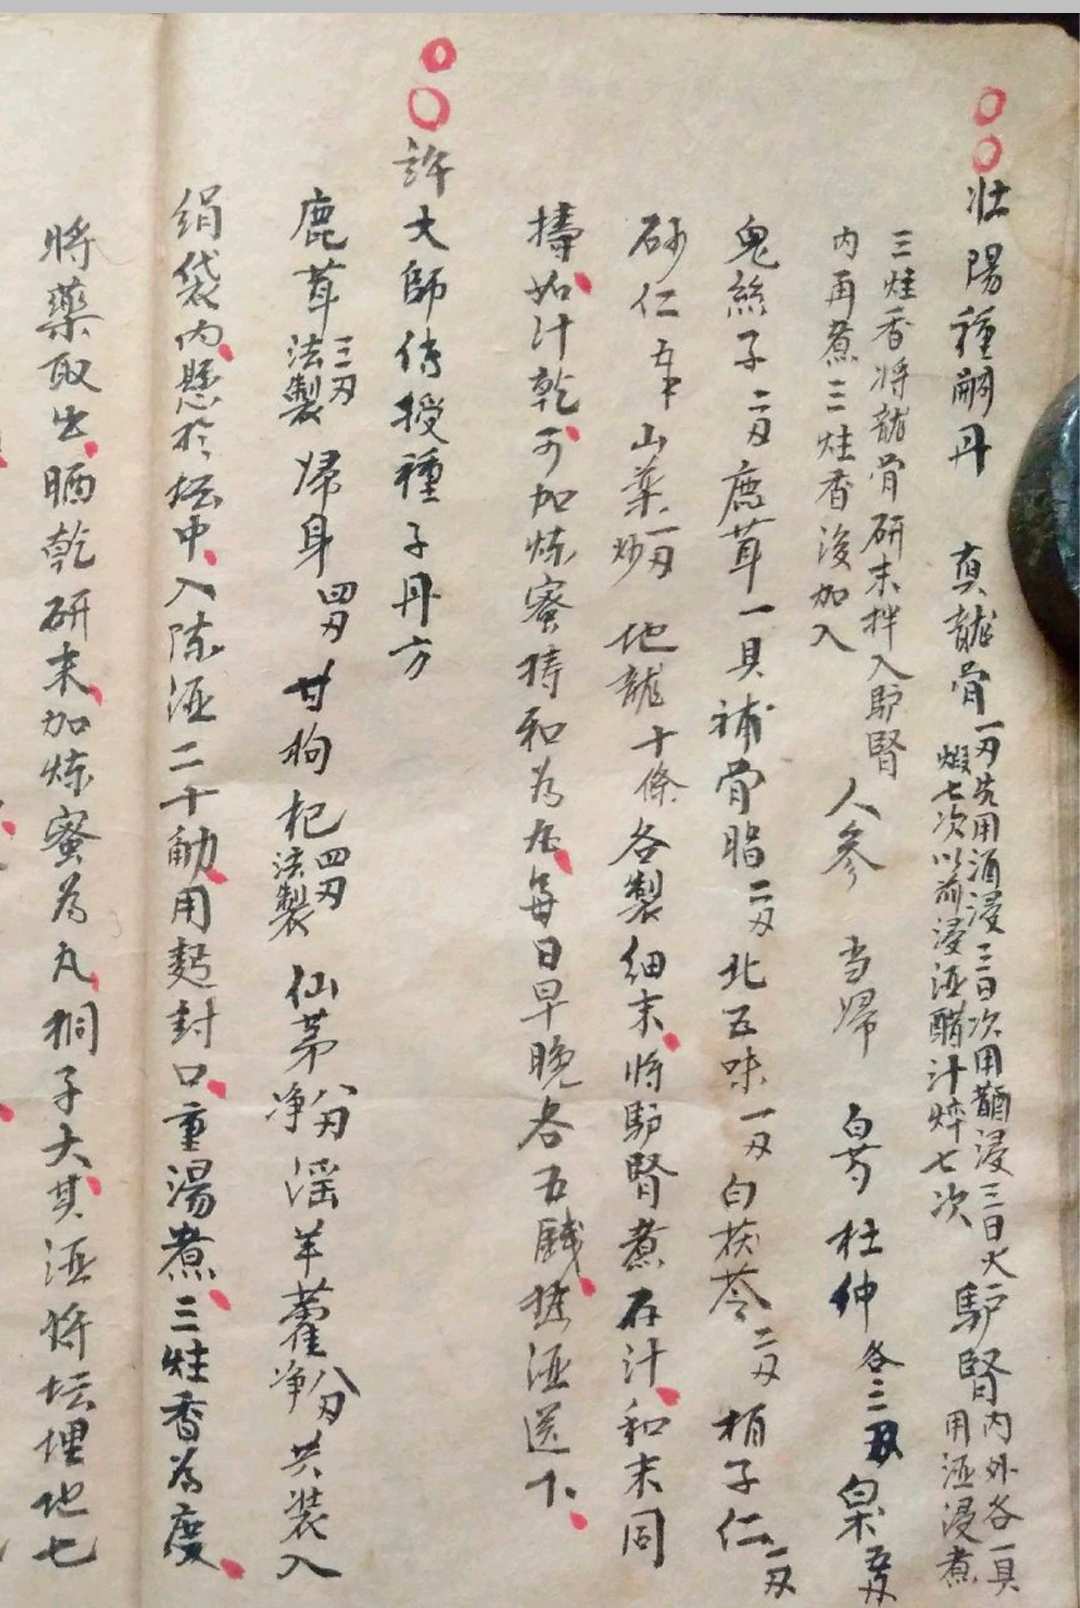 ○○壯陽種嗣丹 真龍骨一刃先用酒浸三日次用醋浸三日火煅七次以前浸酒醋汁焠七次 驴腎内外各一具用酒浸煮
三炷香将龍骨研末拌入馿腎内再煮三炷香後加入 人參 当歸 白芍 杜仲各三刃 白朮五刃
兎絲子二刃鹿茸一具補骨脂二刃北五味一刃白茯苓二刃柏子仁一刃
砂仁五𠂆山藥一刃炒 地龍十條各製細末将馿腎煮存汁和末同
擣如汁乾可加炼蜜擣和為丸每日早晚各五錢酒送下
○○許大師傳授種子丹方
鹿茸三刃法製 歸身四刃 甘枸杞四刃法製 仙茅八刃净 滛羊藿八刃净共装入
绢袋内懸扵坛中入陈酒二十觔用麪封口重湯煮三炷香為度
將藥取出晒乾研末加炼蜜為丸桐子大其酒将坛埋地七